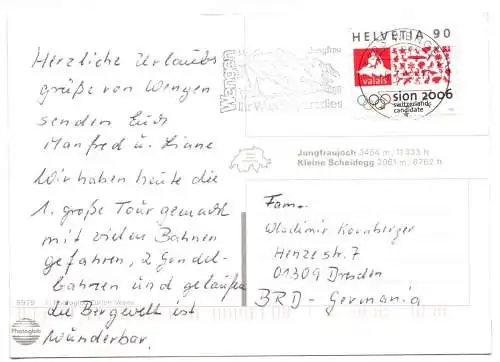 Herzliche Urlaubs
grüße von Wengen
senden Euch
Manfred u. Liane
Wir haben heute die
1. große Tour gemacht
mit vielen Bahnen
gefahren, 2 Gondel-
bahnen und gelaufen
die Bergwelt ist
wunderbar.
HELVETIA 90
valais
sion 2006
switzerland
candidate
Wengen
Jungfrau
Jungfraujoch 3454 m/11333 h.
Kleine Scheidegg 2061 m/6762 h.
Fam.
Wladimir Kornberger
Henzestr. 7
01309 Dresden
BRD - Germania
5979
Photoglob